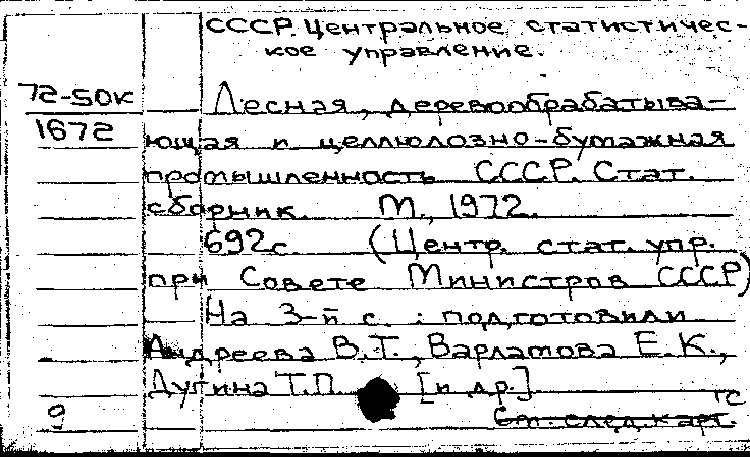 СССР. Центральное статистичес-
кое управление.
72-50к
1672
Лесная, деревообрабатыва-
ющая и целлюлозно-бумажная
промышленность СССР. Стат.
сборник. М., 1972.
692с. (Центр. стат. упр.
при Совете Министров СССР)
На 3-й с.: подготовили
Андреева В.Т., Варламова Е.К.,
Дугина Т.П. [и др.]
тс
9
См. след. карт.